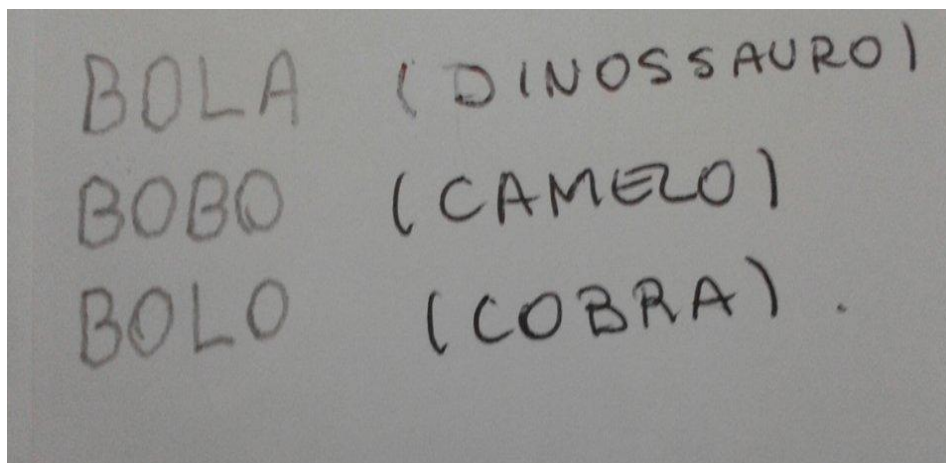 BOLA (DINOSSAURO)
BOBO (CAMELO)
BOLO (COBRA).